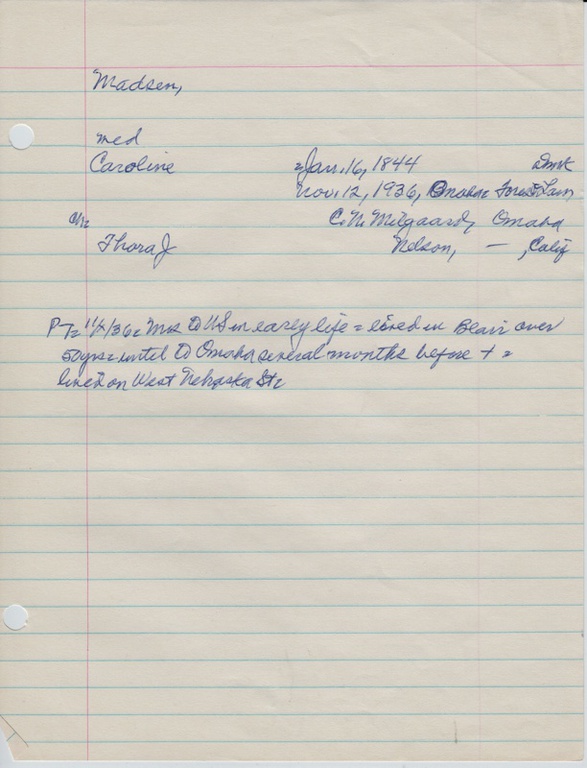 Madsen,
med
Caroline Jan. 16, 1844 Dmk
Nov. 12, 1936, Omaha Forest Lawn
C. N. Milgaard, Omaha
Thora J Nelson, — , Calif
Mrs to US in early life = lived in Blair over
50 yrs = until to Omaha several months before + =
lived on West Nebraska St=